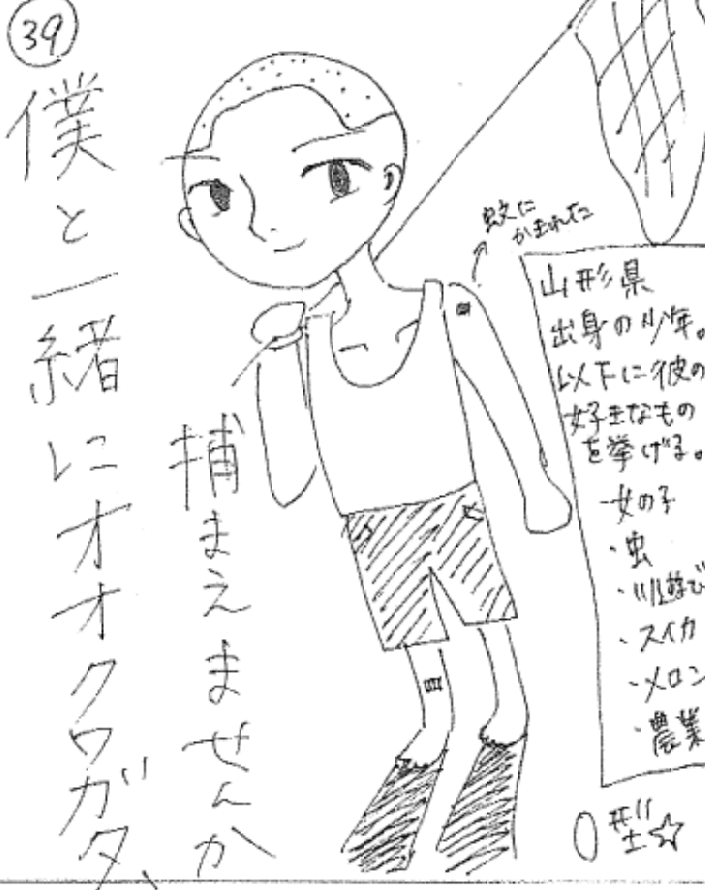 39
僕と一緒にオオクワガタ、
捕まえませんか
蚊に
かまれた
山形県
出身の少年。
以下に彼の
好きなもの
を挙げる。
・女の子
・虫
・川遊び
・スイカ
・メロン
・農業
O型☆